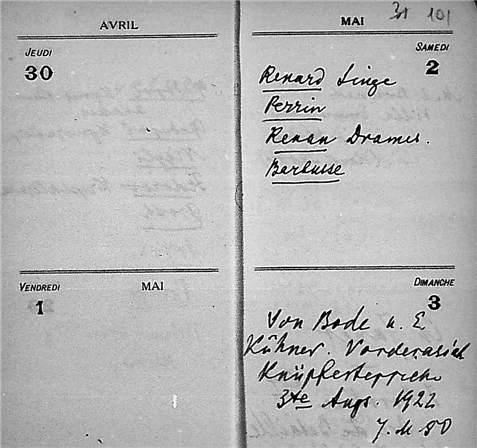 AVRIL
JEUDI
30
VENDREDI MAI
1
MAI 31 101
SAMEDI
2
Renard Singe
Perrin
Renan Drames.
Barbusse
DIMANCHE
3
Von Bode u. E
Kühner. Vorderasiat
Knüpfteppiche
3te Aufl. 1922
7. M 50